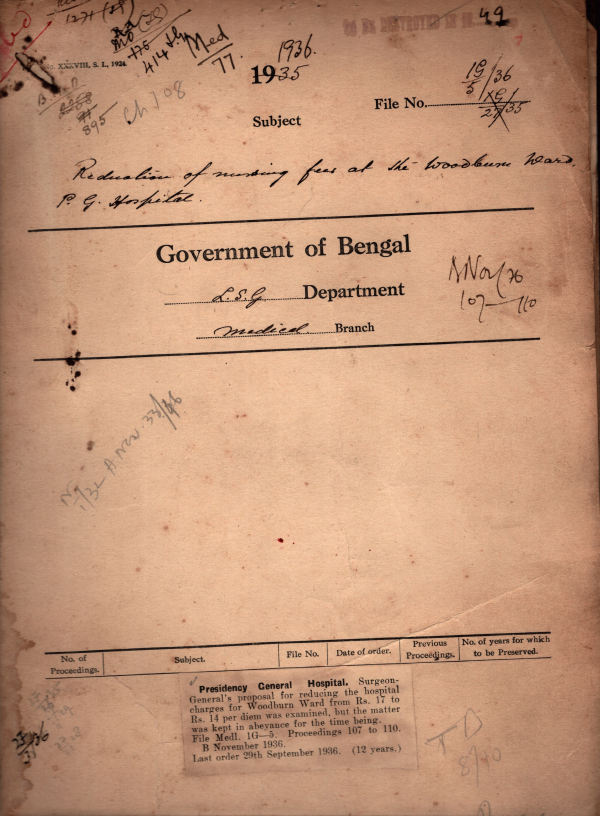 1271 (28)
414th
Med
77
49
TO BE DESTROYED IN
No. XXXVIII, S. I., 1924.
1936.
1935
File No. 1G/5/36
XG/27/35
895
Ch 708
Subject
Reduction of nursing fees at the Woodburn Ward,
P. G. Hospital.
Government of Bengal
L.S.G Department
Medical Branch
Nov/36
107—110
No. of Proceedings. Subject. File No. Date of order. Previous Proceedings. No. of years for which to be Preserved.
Presidency General Hospital. Surgeon-
General's proposal for reducing the hospital
charges for Woodburn Ward from Rs. 17 to
Rs. 14 per diem was examined, but the matter
was kept in abeyance for the time being.
File Medl. 1G—5. Proceedings 107 to 110.
B November 1936.
Last order 29th September 1936. (12 years.)
8/40